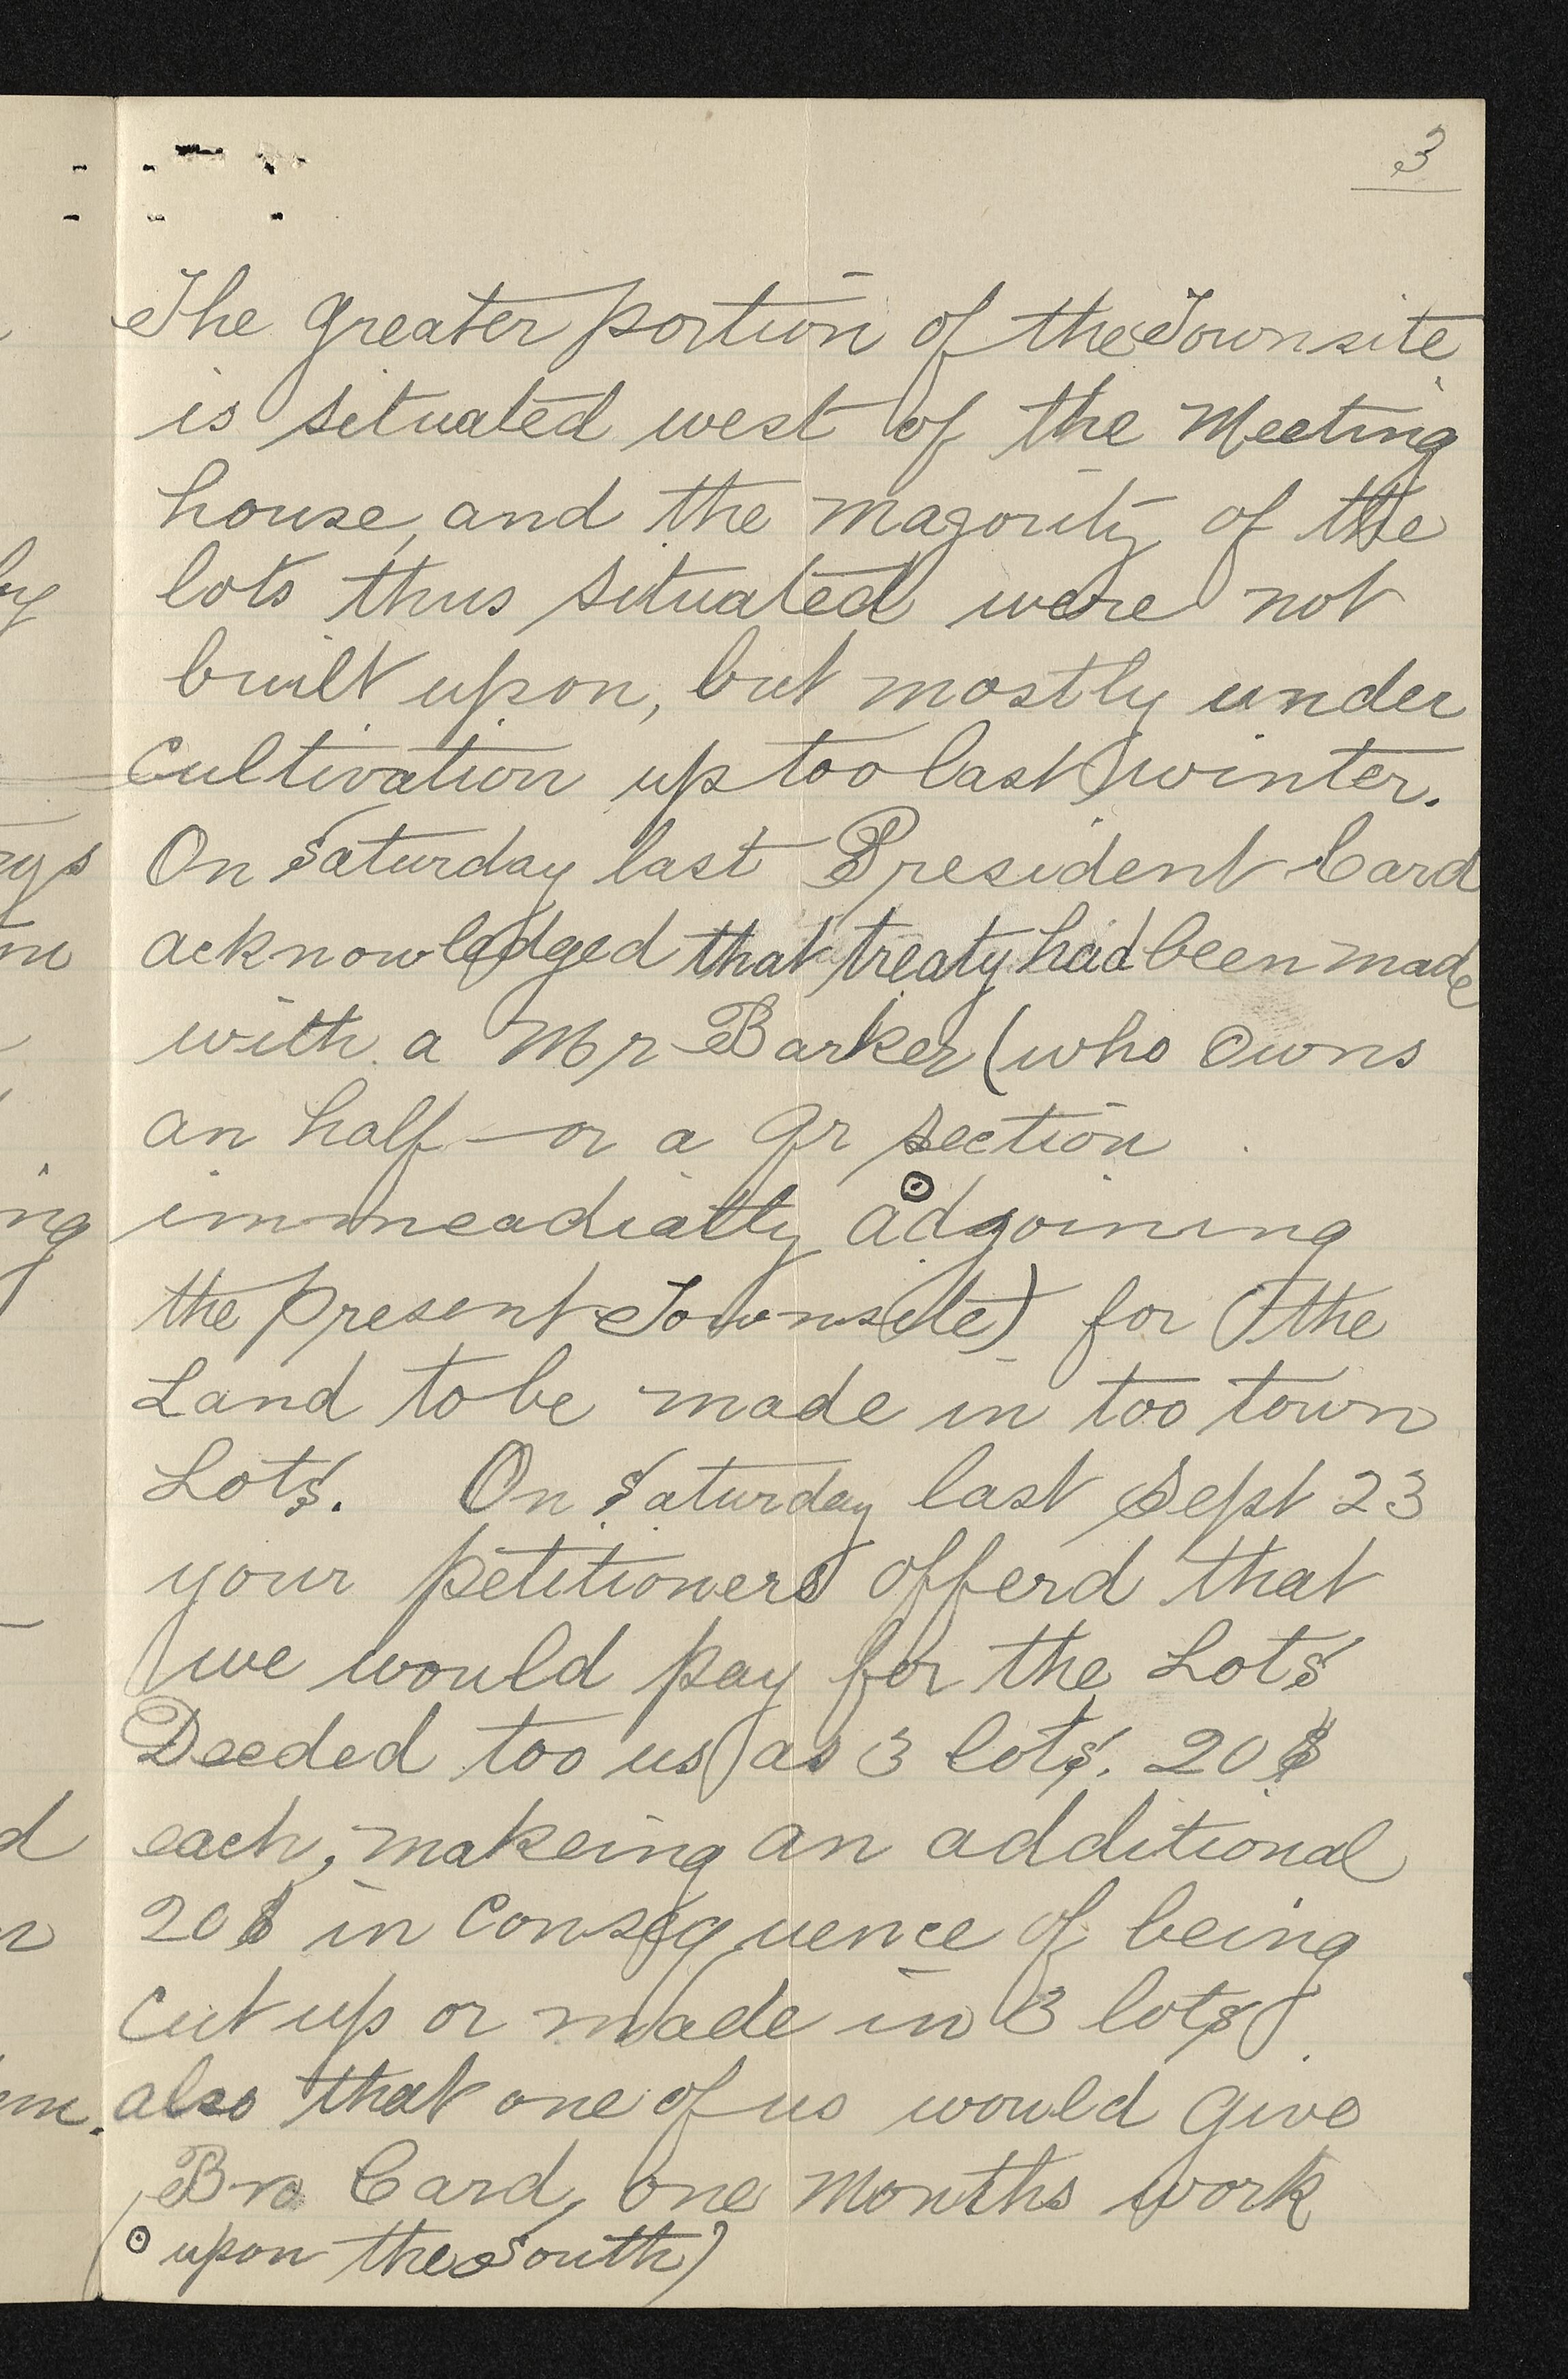 3
The greater portion of the Townsite
is situated west of the Meeting
house, and the magority of the
lots thus situated were not
built upon, but mostly under
Cultivation up too last winter.
On Saturday last President Card
acknowledged that treaty had been made
with a Mr Barker (who owns
an half - or a qr section
immeadiatly adgoining
the present Townsite) for the
Land to be made in too town
Lots. On Saturday last Sept 23
your petitioners offerd that
we would pay for the Lots
Deeded too us as 3 lots. 20$
each, makeing an additional
20$ in Consequence of being
Cut up or made in 3 lots
also that one of us would give
Bro Card, one months work
(⊙ upon the South)